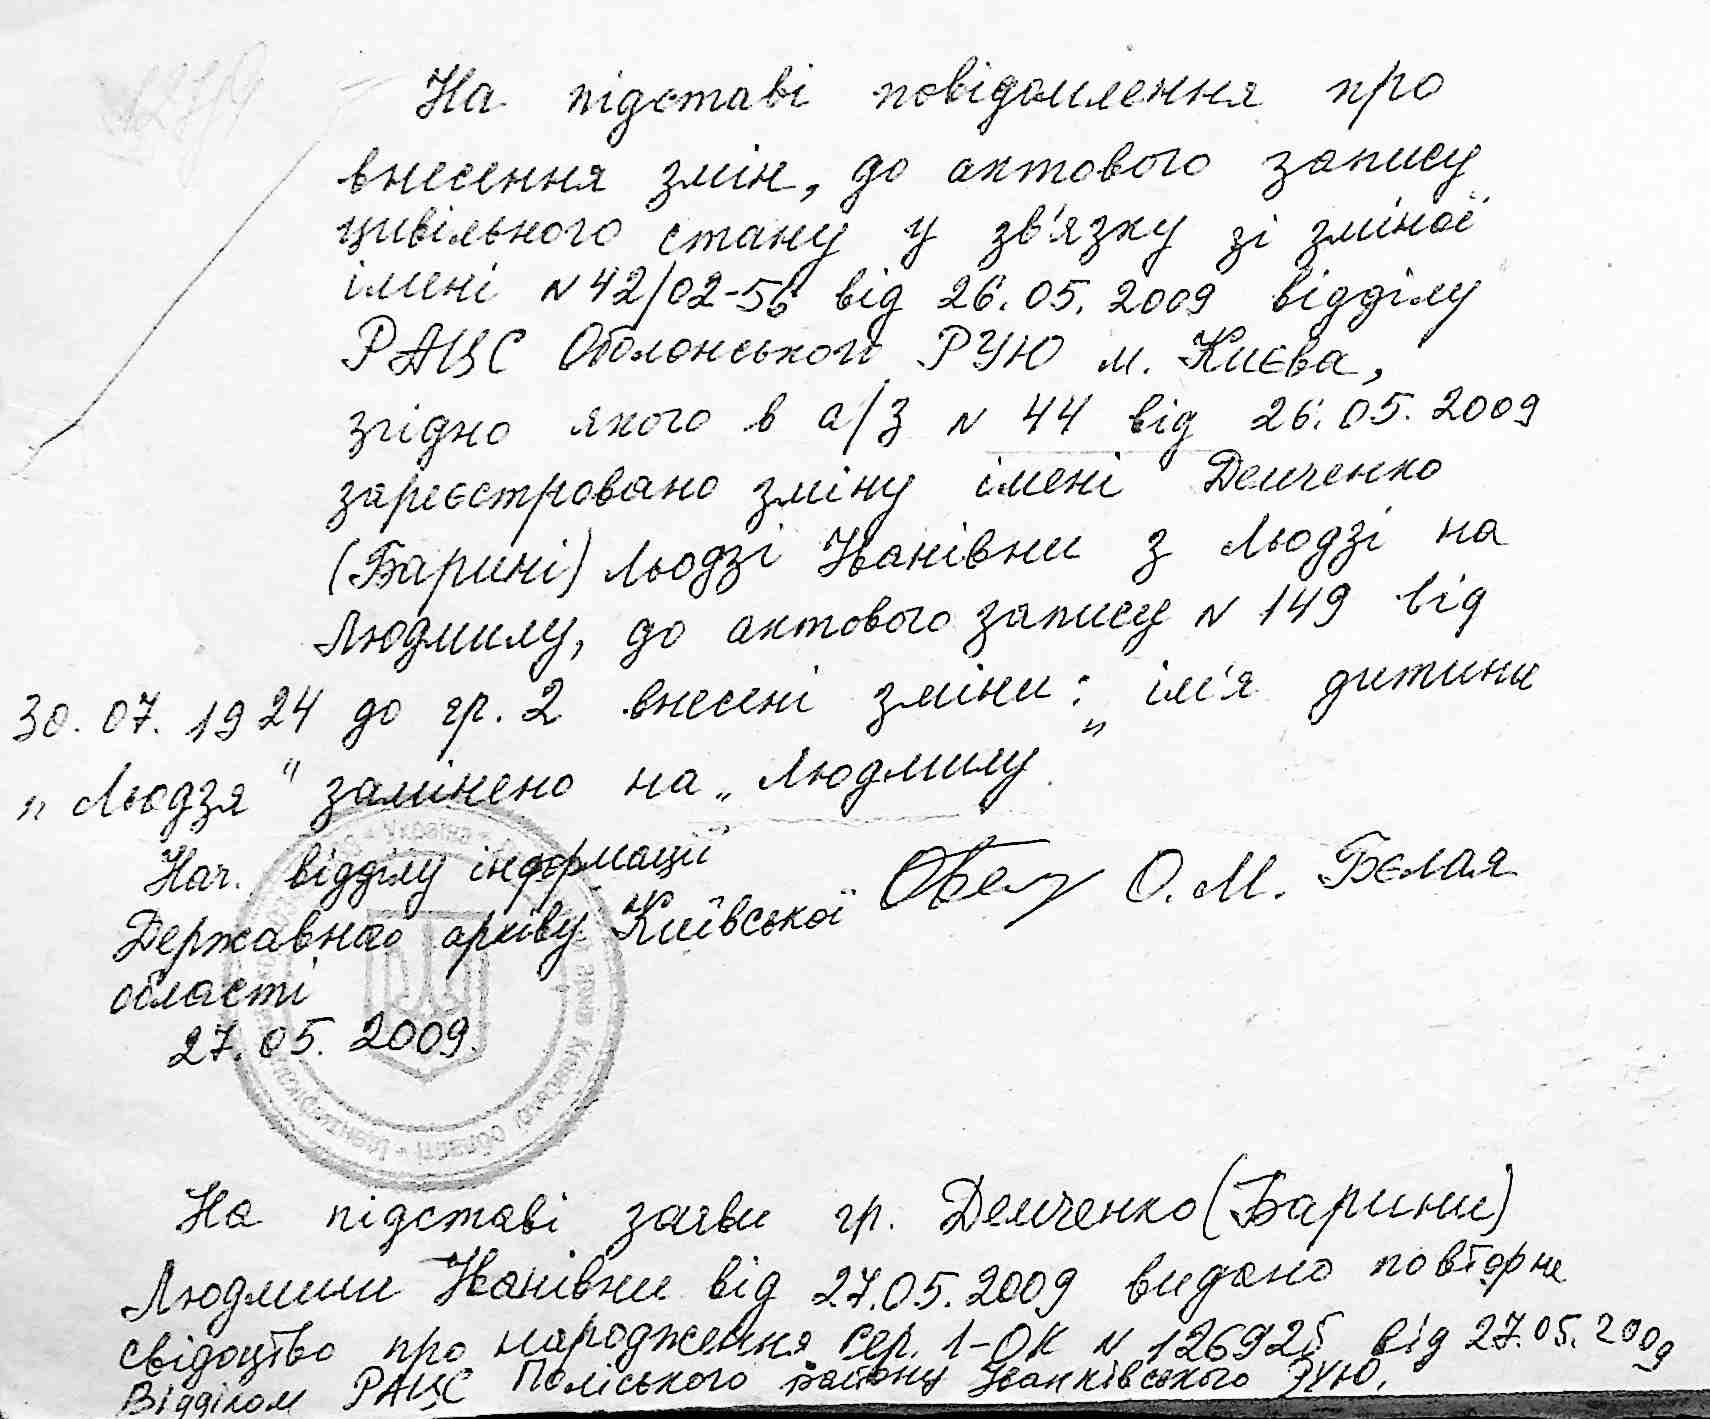 На підставі повідомлення про
внесення змін, до актового запису
цивільного стану у зв'язку зі зміною
імені N 42/02-56 від 26.05.2009 відділу
РАЦС Оболонського РУЮ м. Києва,
згідно якого в а/з N 44 від 26.05.2009
зареєстровано зміну імені Демченко
(Барині) Людзі Іванівни з Людзі на
Людмилу, до актового запису N 149 від
30.07.1924 до гр. 2 внесені зміни: ім'я дитини
„Людзя“ замінено на „Людмилу“
Нач. відділу інформації
Державного архіву Київської О.М. Бєлая
області
27.05.2009.
Україна
На підставі заяви гр. Демченко (Барини)
Людмили Іванівни від 27.05.2009 видано повторне
свідоцтво про народження сер. 1-ОК N 126925 від 27.05.2009
Відділом РАЦС Поліського району Іванківського